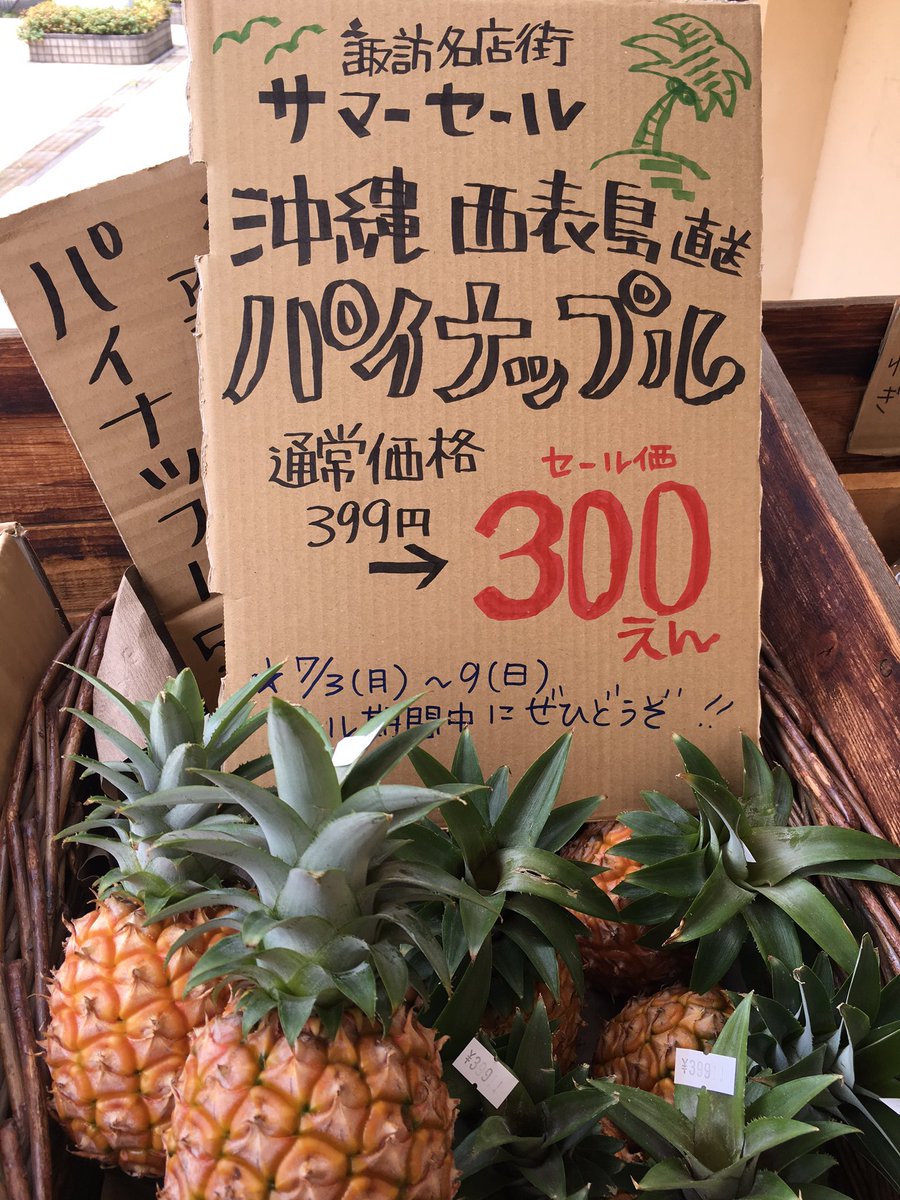 諏訪名店街
サマーセール
沖縄 西表島 直送
パイナップル
通常価格
399円
→
セール価
300
えん
☆ 7/3(月)~9(日)
ール期間中にぜひどうぞ!!
パイナップル
¥399
¥399